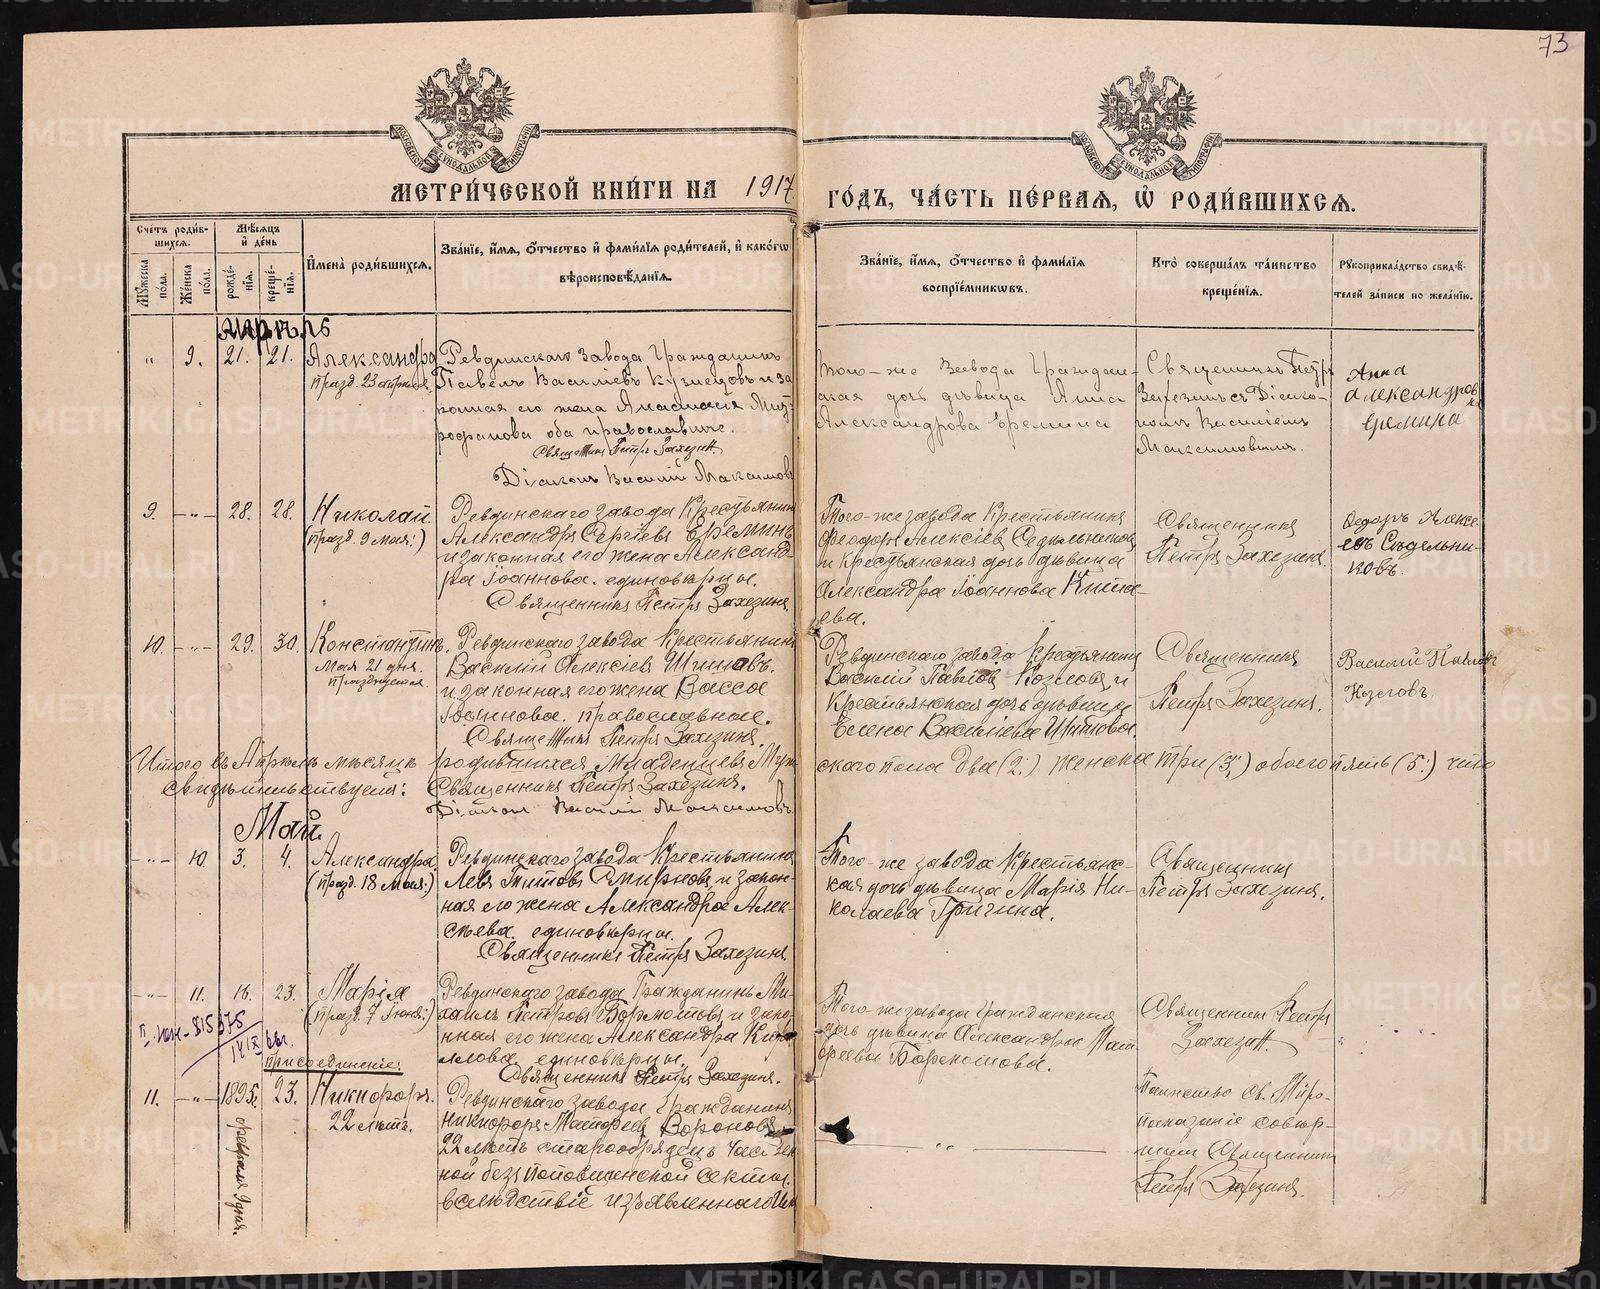 73
МЕТРИ́ЧЕСКОЙ КНИ́ГИ НА 1917
ГО́ДЪ, ЧА́СТЬ ПЕ́РВАѦ, Ѡ҆ РОДИ́ВШИХСѦ.
Сче́тъ роди́вшихся.
Мѣ́сяцъ и҆ де́нь
Мꙋ́жеска по́ла.
Же́нска по́ла.
рожде́нїѧ.
креще́нїѧ.
И҆мена̀ роди́вшихсѧ.
Зва́нїе, и҆́мѧ, ѻ҆́тчество и҆ фами́лїѧ роди́телей, и҆ како́гѡ вѣроисповѣ́данїѧ.
Зва́нїе, и҆́мѧ, ѻ҆́тчество и҆ фами́лїѧ воспрїе́мникѡвъ.
Кто̀ соверша́лъ та́инство креще́нїѧ.
Рꙋкоприкла́дство свидѣ́телей за́писи по жела́нїю.
Апрѣль
" 9. 21. 21. Александра
празд. 23 апреля
Ревдинскаго Завода Гражданинъ
Павелъ Василіевъ Кузнецовъ и за
конная его жена Анастасія Мит
рофанова оба православные.
Священникъ Петръ Захезинъ
Діаконъ Василій Максимовъ
того-же Завода Граждан-
ская дочь дѣвица Анна
Александрова Еремина
Священникъ Петръ
Захезинъ съ Діако-
номъ Василіемъ
Максимовымъ.
Анна
Александровна
Еремина
9. -"- 28. 28. Николай.
(празд. 9 мая:)
Ревдинскаго завода Крестьянинъ
Александръ Сергѣевъ Ереминъ
и законная его жена Александ-
ра Іоаннова. единовѣрцы.
Священникъ Петръ Захезинъ.
Того-же завода Крестьянинъ
Феодоръ Алексіевъ Седельниковъ
и Крестьянская дочь дѣвица
Александра Іоаннова
ева.
Священникъ
Петръ Захезинъ.
Федоръ Алексе-
евъ Съдельни-
ковъ.
10. -"- 29. 30. Константинъ.
мая 21 дня.
празднуется
Ревдинскаго завода Крестьянинъ
Василій Алексіевъ
и законная его жена Васса
Іоаннова. православные.
Священникъ Петръ Захезинъ.
Ревдинскаго завода Крестьянинъ
Василій Павловъ Козловъ и
Крестьянская дочь дѣвица
Елена Василіева Шитова.
Священникъ
Петръ Захезинъ.
Василий Павловъ
Козловъ.
Итого въ Апрелѣ мѣсяцѣ родившихся младенцевъ Муж
скаго пола два (2:) женска три (3:) обоего пять (5:) что
Свидѣтельствуемъ: Священникъ Петръ Захезинъ.
Діаконъ Василій Максимовъ
Май.
-"- 10. 3. 4. Александра
(празд. 18 мая:)
Ревдинскаго завода Крестьянинъ
Левъ Титовъ Смирновъ и закон-
ная его жена Александра Алек-
сѣева. единовѣрцы.
Священникъ Петръ Захезинъ
Того-же завода Крестьянс-
кая дочь дѣвица Марія Ни-
колаева Григина.
Священникъ
Петръ Захезинъ.
-"- 11. 16. 23. Марія
(празд. 7 Іюня:)
Ревдинскаго завода Гражданинъ Ми-
хаилъ Петровъ и зако-
нная его жена Александра Кир
иллова единовѣрцы.
Священникъ Петръ Захезинъ.
Того-же завода Гражданская
дочь дѣвица Александра Мат
фѣева
Священникъ Петръ
Захезин.
815375
присоединеніе:
11. -"- 1895. 23. Никифоръ.
22 лѣтъ.
февраля 9 дня.
Ревдинскаго завода Гражданинъ
Никифоръ Матфеевъ Вороновъ
22 лѣтъ старообрядецъ часовен
ной безъ поповщинской секты.
вслѣдствіе изъявленнаго
"
Таинство Св. Мѵро-
помазаніе совер-
шилъ Священникъ
Петръ Захезинъ.